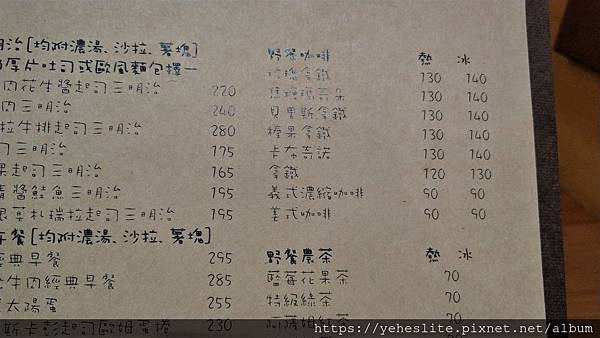 明治[均附濃湯、沙拉、薯塊]
厚片吐司或歐風麵包擇一
肉花生醬起司三明治 220
肉三明治 240
拉牛排起司三明治 280
司三明治 175
果起司三明治 165
青醬鮭魚三明治 195
莫札瑞拉起司三明治 195
早餐[均附濃湯、沙拉、薯塊]
經典早餐 295
牛肉經典早餐 285
太陽蛋 255
斯卡彭起司歐姆蛋捲 230
野餐咖啡 熱 冰
拿鐵 130 140
焦糖瑪奇朵 130 140
貝里斯拿鐵 130 140
榛果拿鐵 130 140
卡布奇諾 130 140
拿鐵 120 130
義式濃縮咖啡 90 90
美式咖啡 90 90
野餐農茶 熱 冰
藍莓花果茶 70
特級綠茶 70
阿薩姆紅茶 70
https://yeheslite.pixnet.net/album